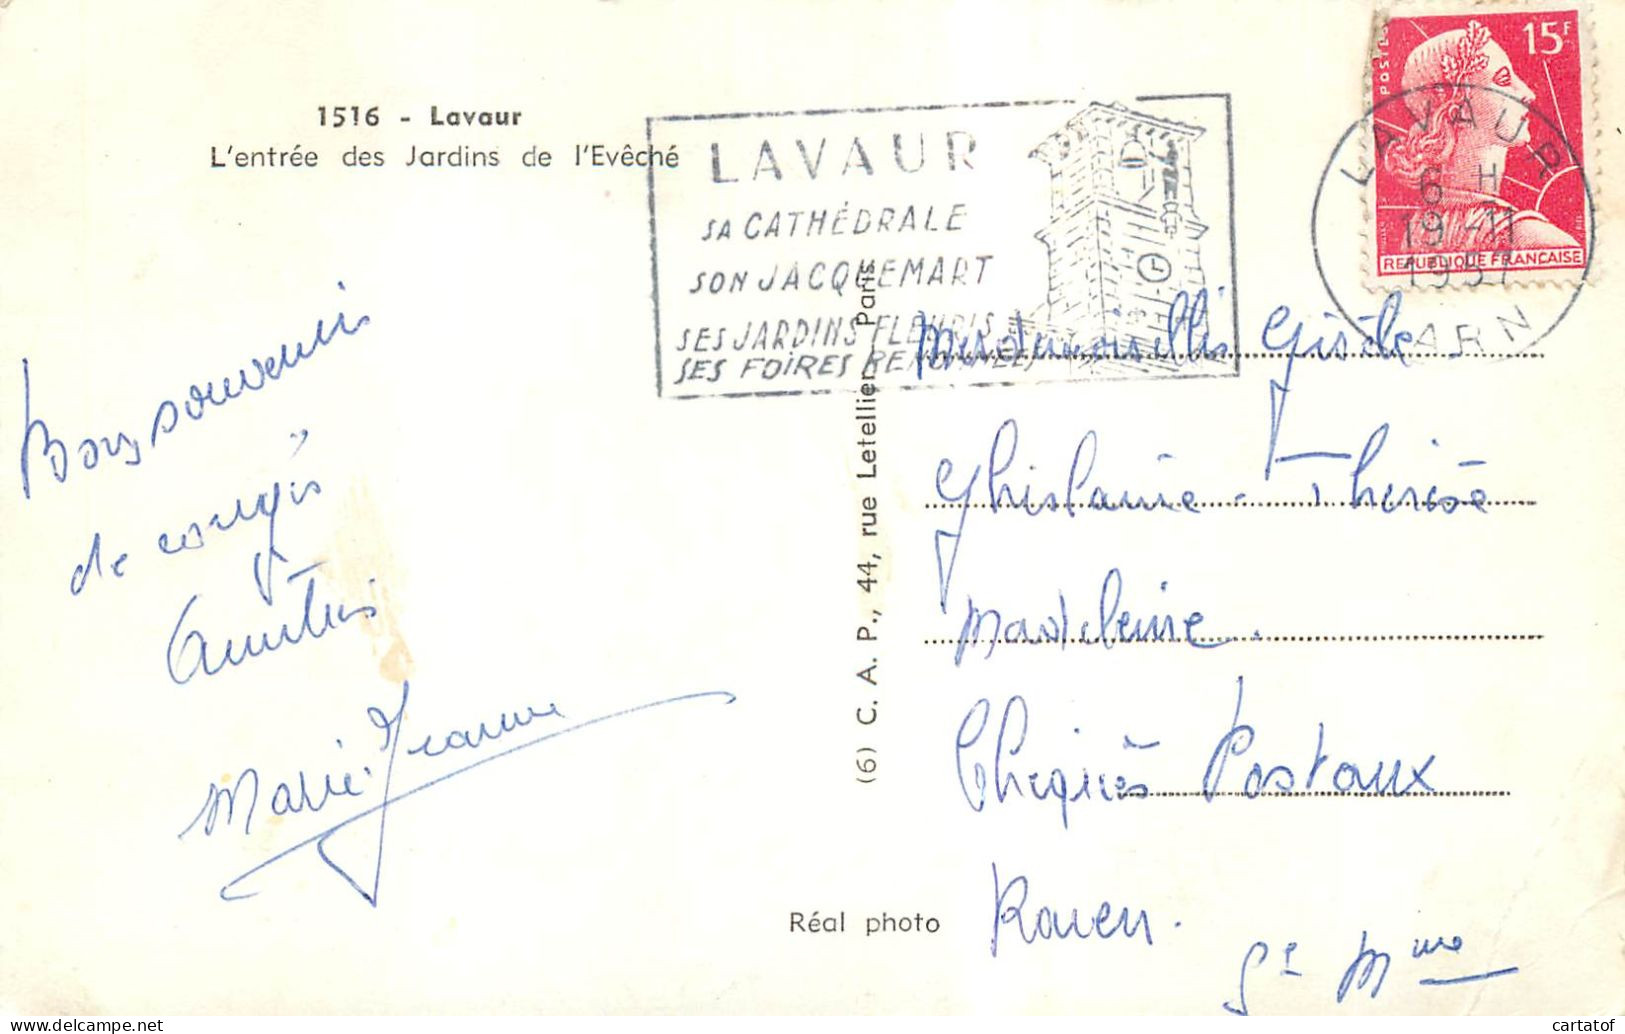 1516 - Lavaur
L'entrée des Jardins de l'Evêché
LAVAUR
SA CATHÉDRALE
SON JACQUEMART
SES JARDINS FLEURIS
SES FOIRES RENOMMÉES
POSTES
15F
REPUBLIQUE FRANCAISE
LAVAUR
6 H
19-11
1957
TARN
Bons souvenirs
de congés
Amitiés
Marie Jeanne
(6) C. A. P., 44, rue Letellier, Paris
Réal photo
Mesdemoiselles Gisèle
Ghislaine - Thérèse
Madeleine.
Chèques Postaux
Rouen.
Sne Mme
cartatof
delcampe.net